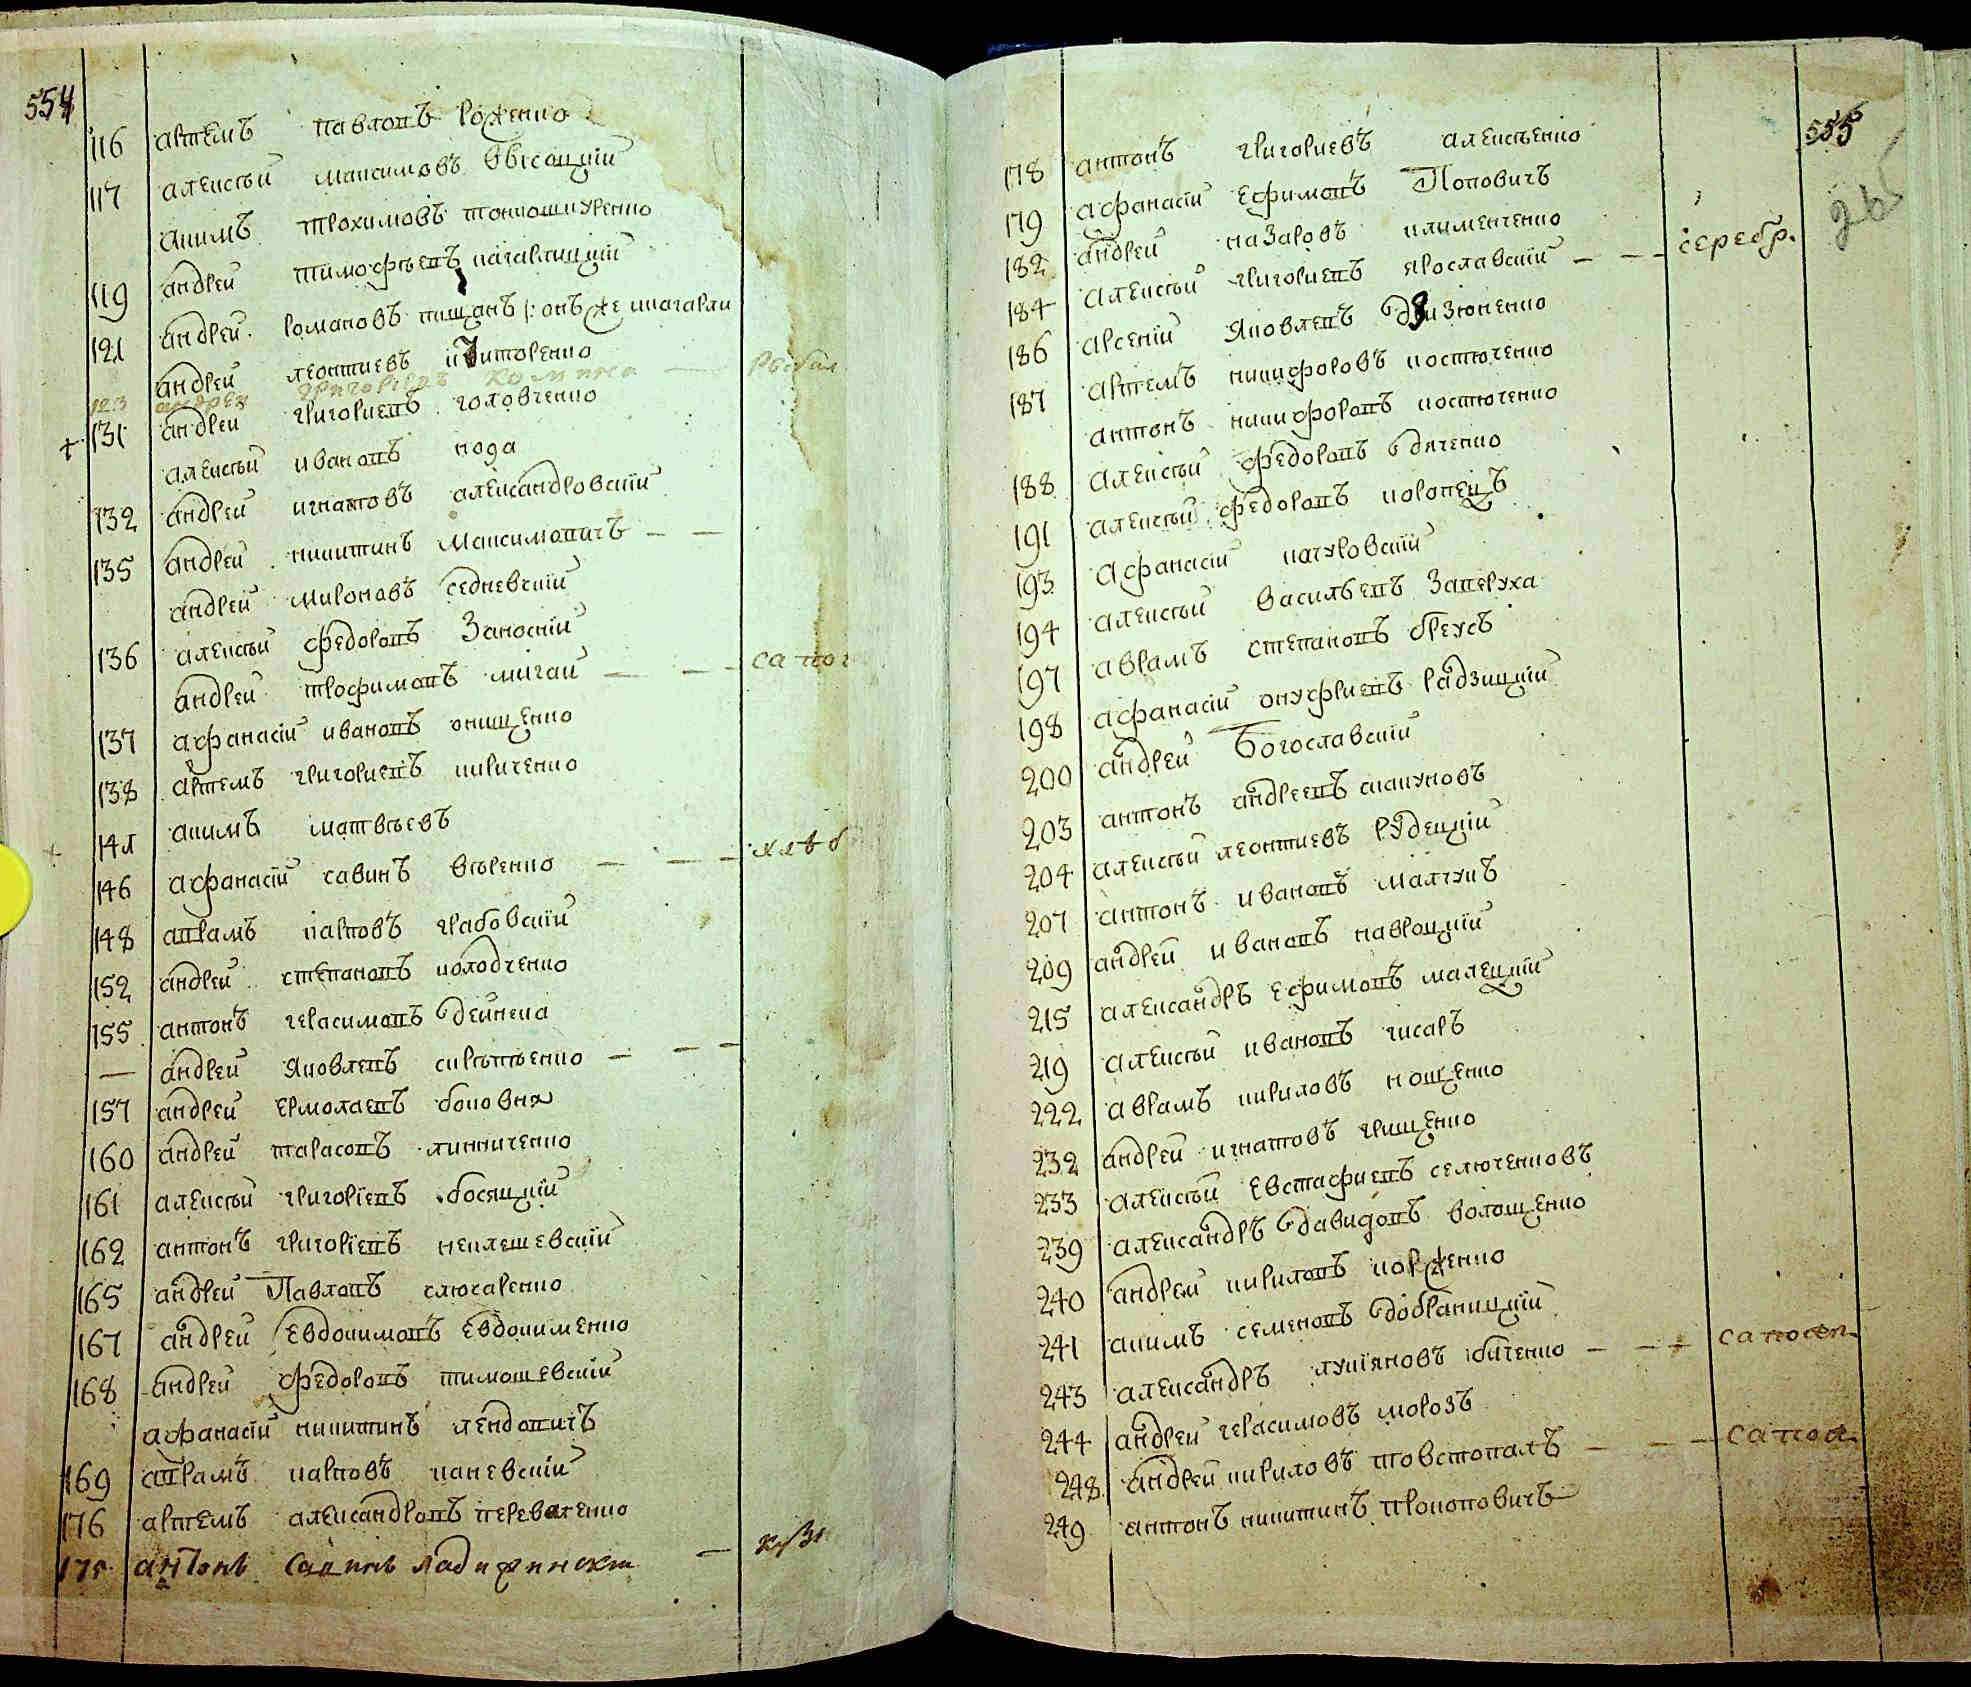 554
116 артемъ павловъ роженко
117 алексѣй максимовъ Ѡвсоцкій
акимъ трохимовъ токношкуренко
119 андрей тимофѣевъ кагарлицкій
121 андрей романовъ пищанъ |: онъ же кнагарли
андрей леонтиевъ кучиторенко
123 андрей григориевъ комика — рыбал
131 андрей григориевъ головченко
алексѣй ивановъ нода
132 андрей игнатовъ александровскій
135 андрей никитинъ максимовичъ — —
андрей мироновъ седневскій
136 алексѣй федоровъ Заноскій
андрей трофимовъ мигай — — сапог
137 афанасій ивановъ онищенко
138 артемъ григориевъ кириченко
141 акимъ матвѣевъ
146 афанасій савинъ вѣренко — — — хлѣб
148 аврамъ карповъ грабовскій
152 андрей степановъ колодченко
155 антонъ герасимовъ дейнека
— андрей Яковлевъ сирѣтѣенко — — —
157 андрей ермолаевъ боковня
160 андрей тарасовъ линниченко
161 алексѣй григоріевъ босяцкій
162 антонъ григоріевъ неклешевскій
165 андрей Павловъ слюсаренко
167 андрей Евдокимовъ Евдокименко
168 андрей федоровъ тимошевскій
афанасій никитинъ лендовичъ
169 аврамъ карповъ каневскій
176 артемъ александровъ переваленко
175 антонъ савинъ ладижинскій — кузн
555
26
178 антонъ григориевъ алексѣенко
179 афанасій Ефимовъ Поповичъ
182 андрей назаровъ климентенко
184 алексѣй григориевъ ярославскій — — — серебр.
186 арсеній Яковлевъ дзюненко
187 артемъ никифоровъ костюченко
антонъ никифоровъ костюченко
188 алексѣй федоровъ дяченко
191 алексѣй федоровъ коропецъ
193 афанасій качуровскій
194 алексѣй васильевъ Заверуха
197 аврамъ степановъ бреусъ
198 афанасій онуфриевъ Радзицкій
200 андрей Богославскій
203 антонъ андреевъ скакуновъ
204 алексѣй леонтиевъ Рудецкій
207 антонъ ивановъ малчукъ
209 андрей ивановъ навроцкій
215 александръ Ефимовъ малецкій
219 алексѣй ивановъ писаръ
222 аврамъ кириловъ нощенко
232 андрей игнатовъ грищенко
233 алексѣй Евстафиевъ селюченковъ
239 александръ давидовъ волощенко
240 андрей кириловъ корженко
241 акимъ семеновъ добраницкій
243 александръ лукіяновъ юбченко — — — сапожн
244 андрей герасимовъ морозъ
248 андрей кириловъ товстопалъ — — — сапож
249 антонъ никитинъ прокоповичъ